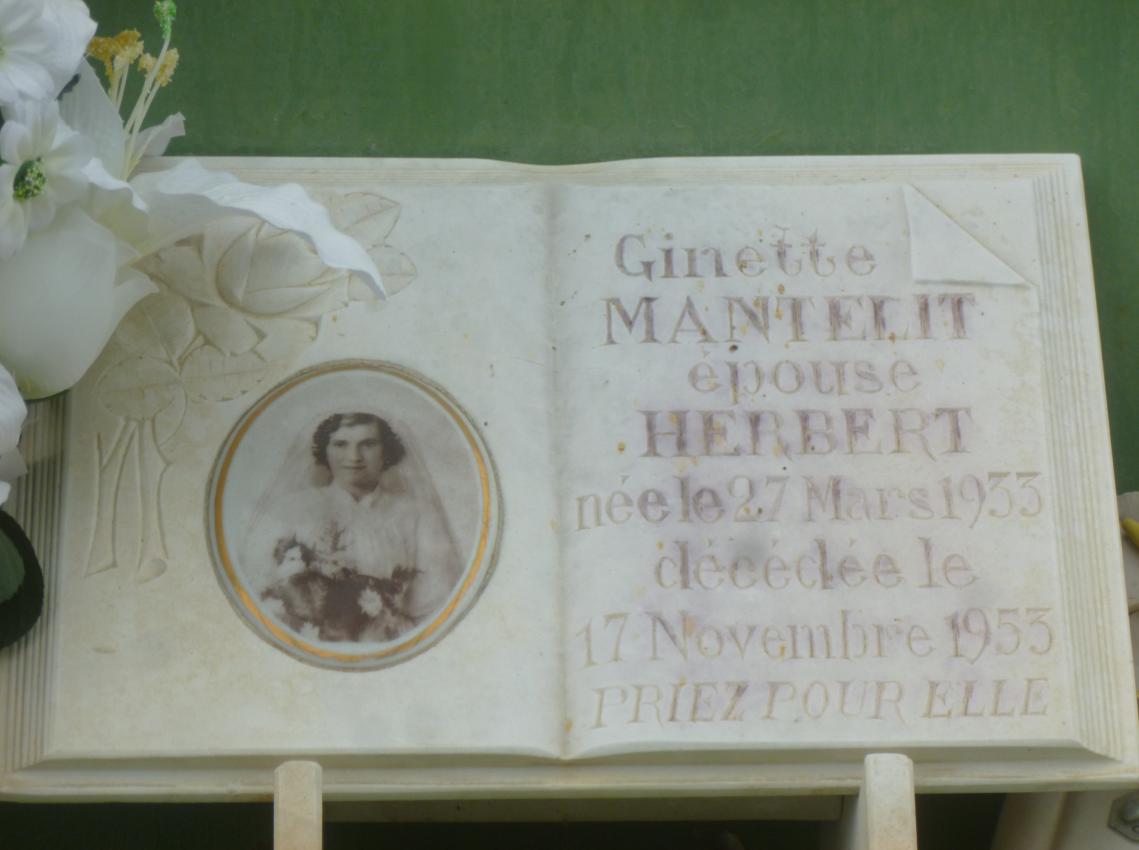 Ginette
MANTELIT
épouse
HERBERT
née le 27 Mars 1933
décédée le
17 Novembre 1953
PRIEZ POUR ELLE